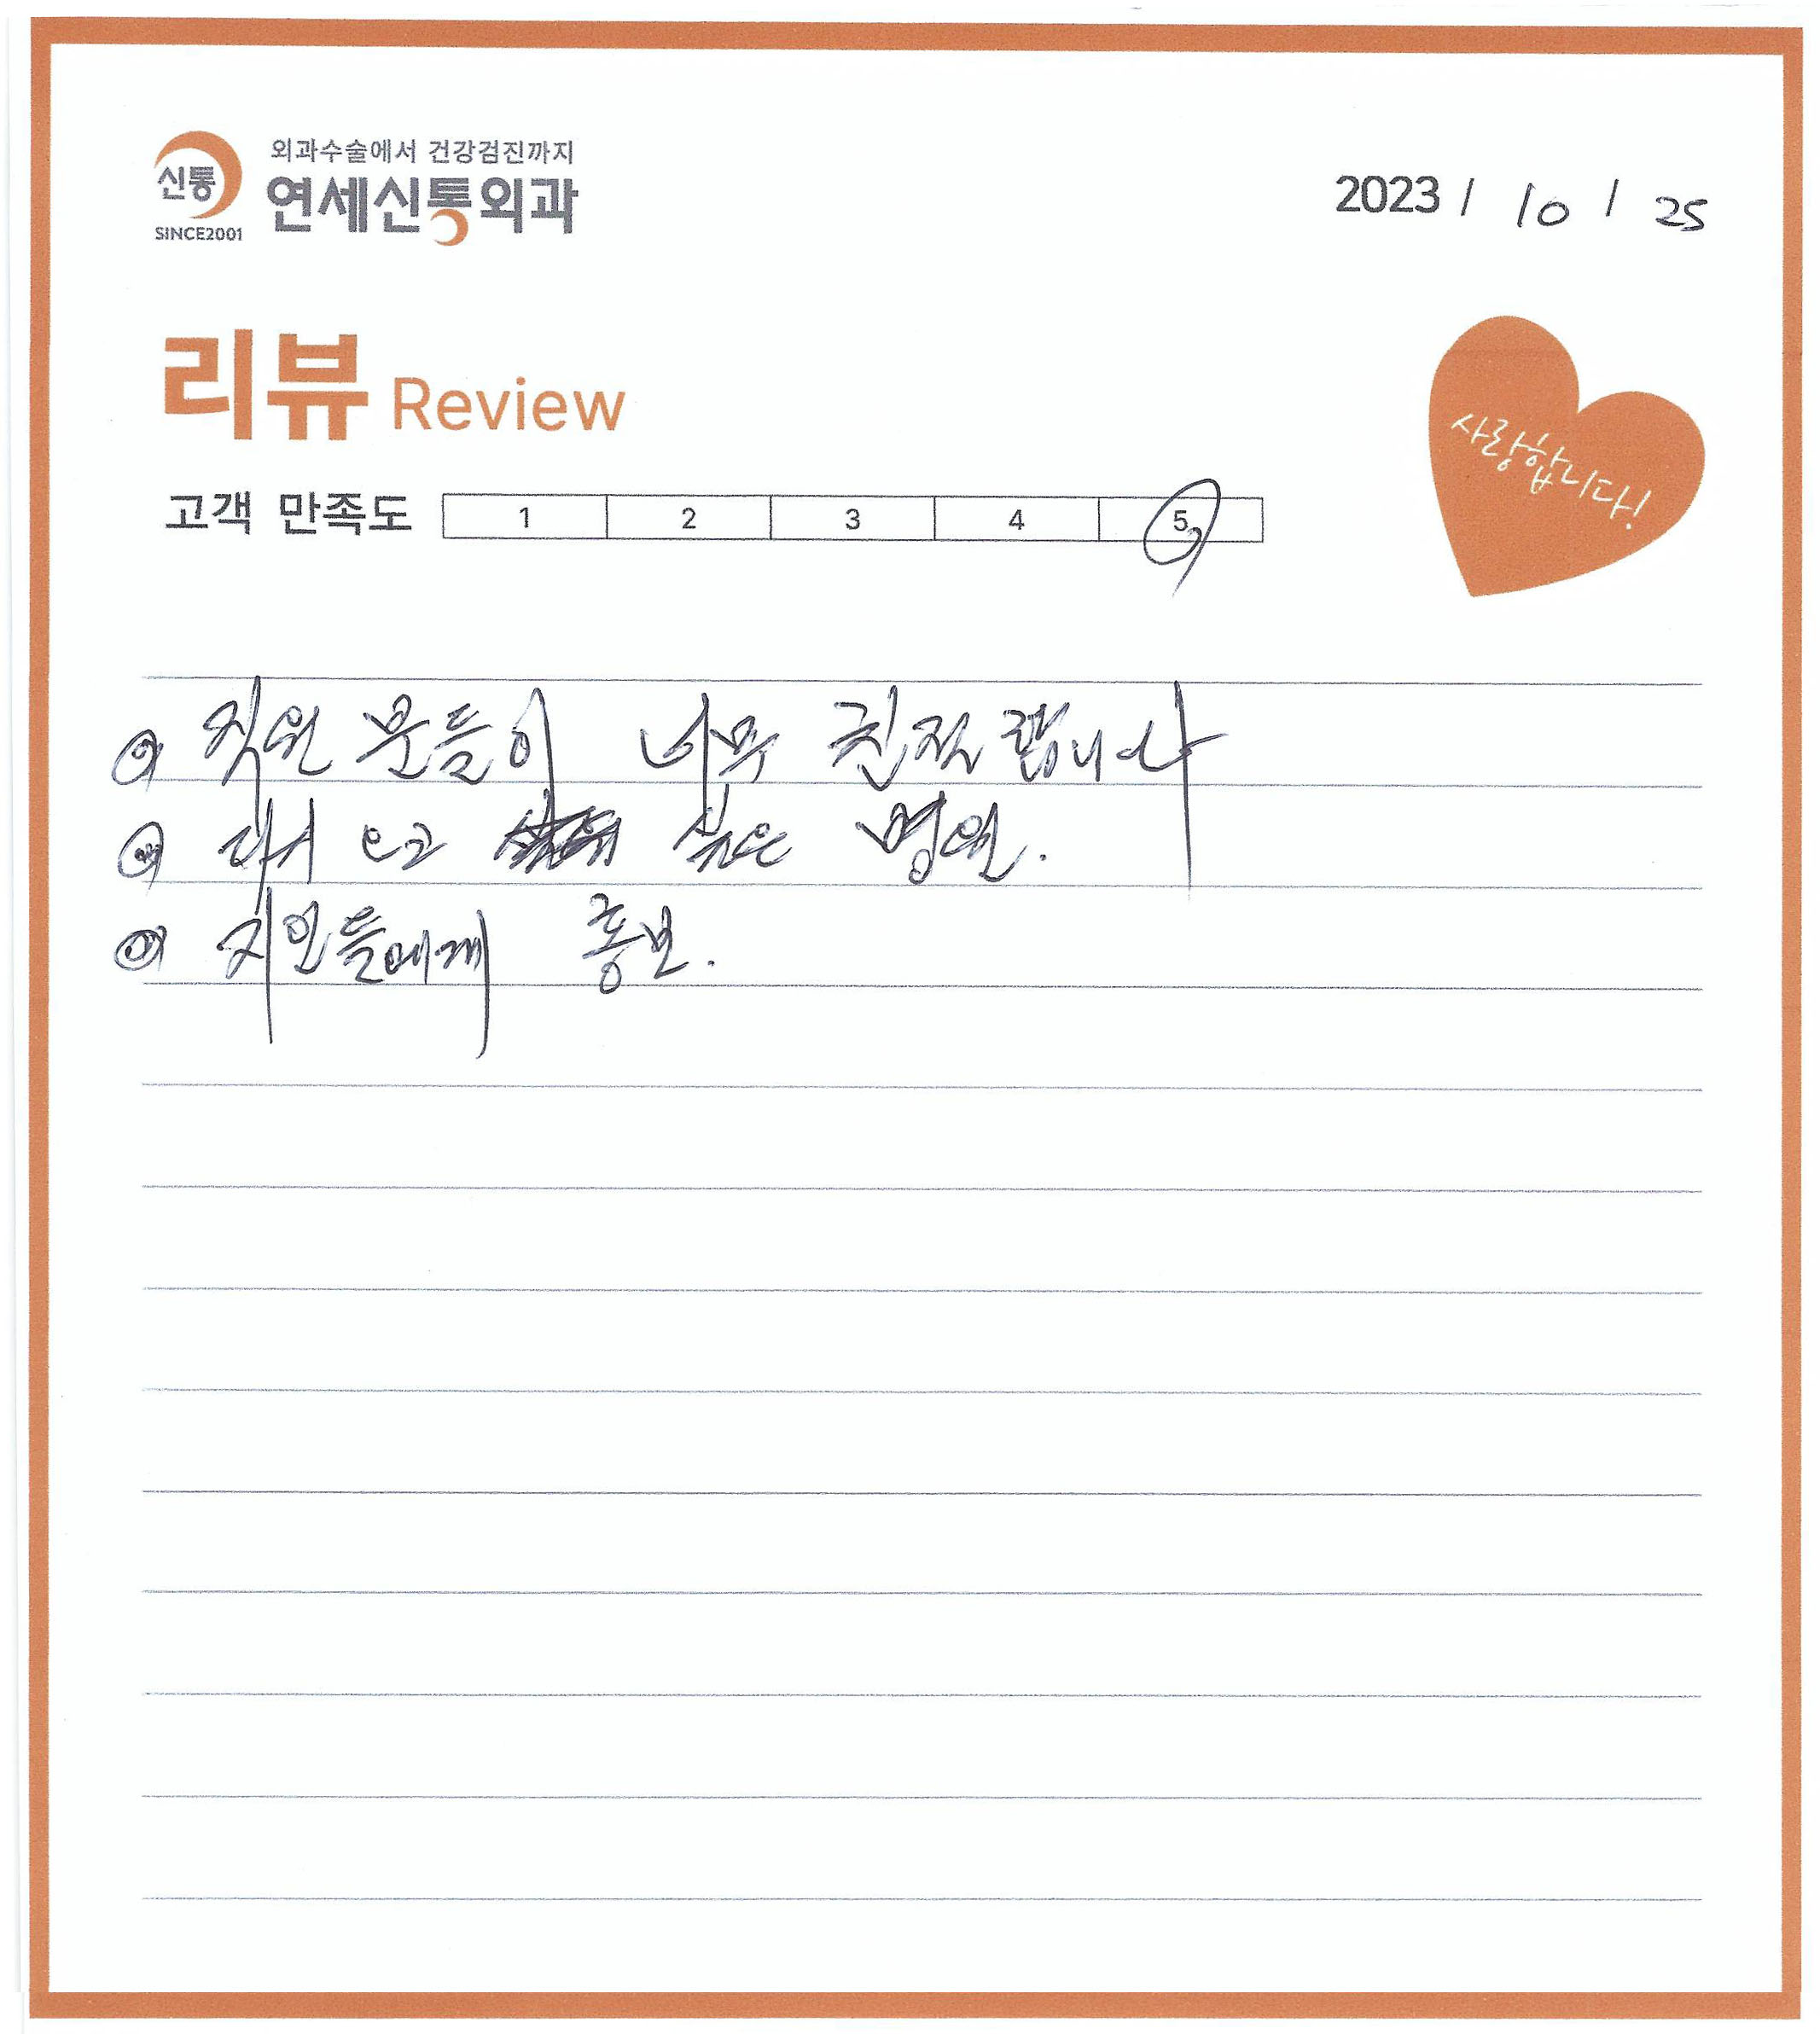 신통
SINCE2001
외과수술에서 건강검진까지
연세신통외과
2023 / 10 / 25
리뷰 Review
사랑합니다!
고객 만족도 1 2 3 4 5
직원 분들이 너무 친절합니다
다시 오고 싶은 병원.
지인들에게 홍보.